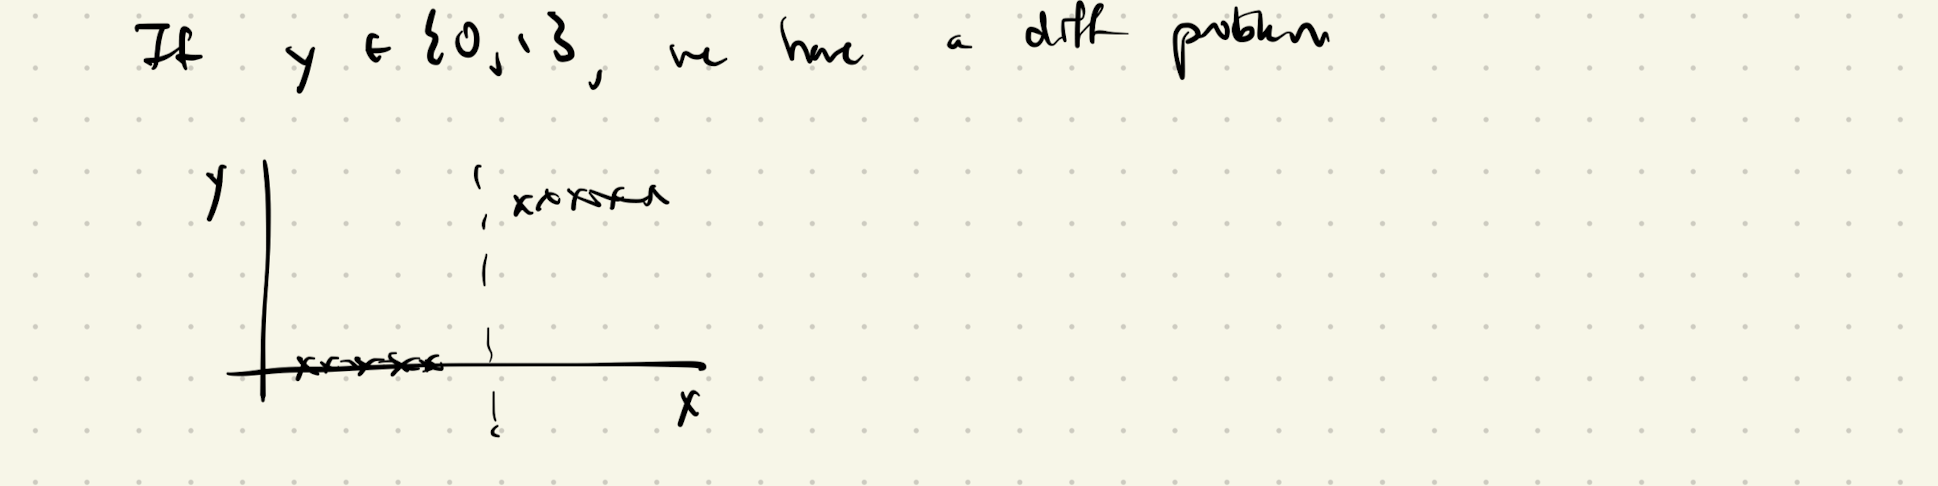 If y ∈ {0, 1}, we have a diff problem
y
x